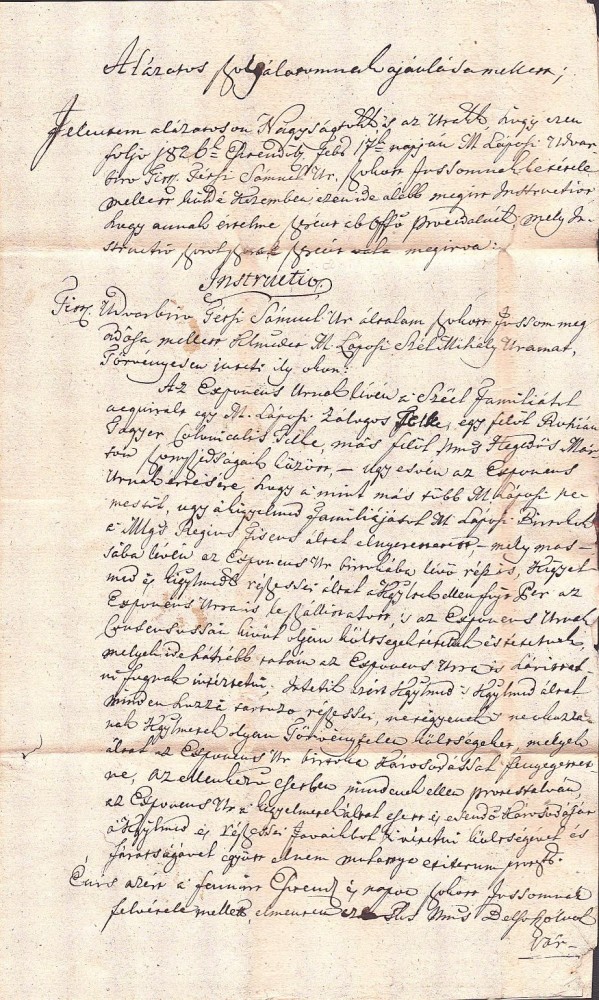 Alázatos szolgálatomnak ajánlása mellett;
Jelentem alázatoson Nagyságtoknak is az Urnak, hogy ezen
folyó 1826k Esztendő Febr 17k napján M. Láposi Udvar
biro Titt. Gersi Sámuel Ur, szokott Jussomnak letétele
mellett küldé kezemben ezen ide alább megirt Instructiot
hogy annak értelme szerént ab Offo procedalnék, mely In-
structio szorol szora szerént vala megirva:
Instructio,
Titt. Udvarbiro Gersi Sámuel Ur általam szokott Jussom meg
adása mellett Kelmedet M. Láposi Szél Mihály Uramat,
Törvényesen inteti ily okon:
Az Exponens Urnak lévén a Széel Familiától
acquirált egy M. Láposi Zálogos Telke, egy felöl
Colonicalis Telke, más felöl Hegedüs Már-
ton szomszédságaik között, – ugy esvén az Exponens
Urnak értésére, hogy a mint más több M. Láposi ne-
mestöl, ugy a kigyelmed Familiájától M. Láposi Birtokok
a Mlgs Regius Fiscus által elnyerettetett, – mely mos-
sába lévén az Exponens Ur birtokába lévö rész is, Kigyel
med és kigyelmed részessei által a Kgyltek ellen folyó Per az
Exponens Urra is és az Exponens Urnak
Consensussán kivül olyan költségek tétettek és tétetnek,
melyek ide hátrább talám az Exponens Urra is háritat-
ni fognak intéztetni, Inteti azért Kgylmed s Kgylmed által
minden hozzá tartozo részessei, ne tégyenek s ne okozza-
nak Kgylmetek olyan Törvénytelen költségeket, melyek
által az Exponens Ur birtoka károsodással fenyegettet-
ne, az ellenkezö esetben mindenek ellen protestálván,
az Exponens Ur a kigyelmetek által esett és esendö károsodását
a Kgylmed és részessei Javaikbol kivétetni költségével és
fáratságával együtt el nem mulattya
Én is azért a fennirt Esztend és napon szokott Jussomnak
felvétele mellett, elmenten Ns Belső Szolnok
Vár–